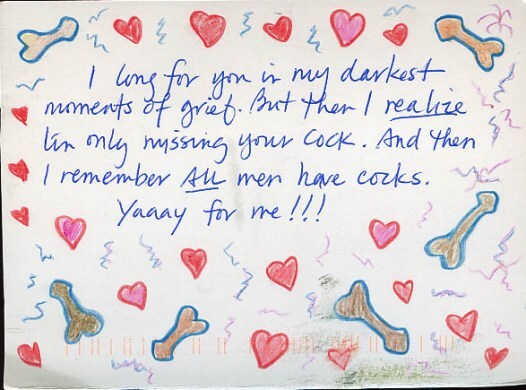 I long for you in my darkest
moments of grief. But then I realize
I'm only missing your cock. And then
I remember ALL men have cocks.
Yaaay for me!!!